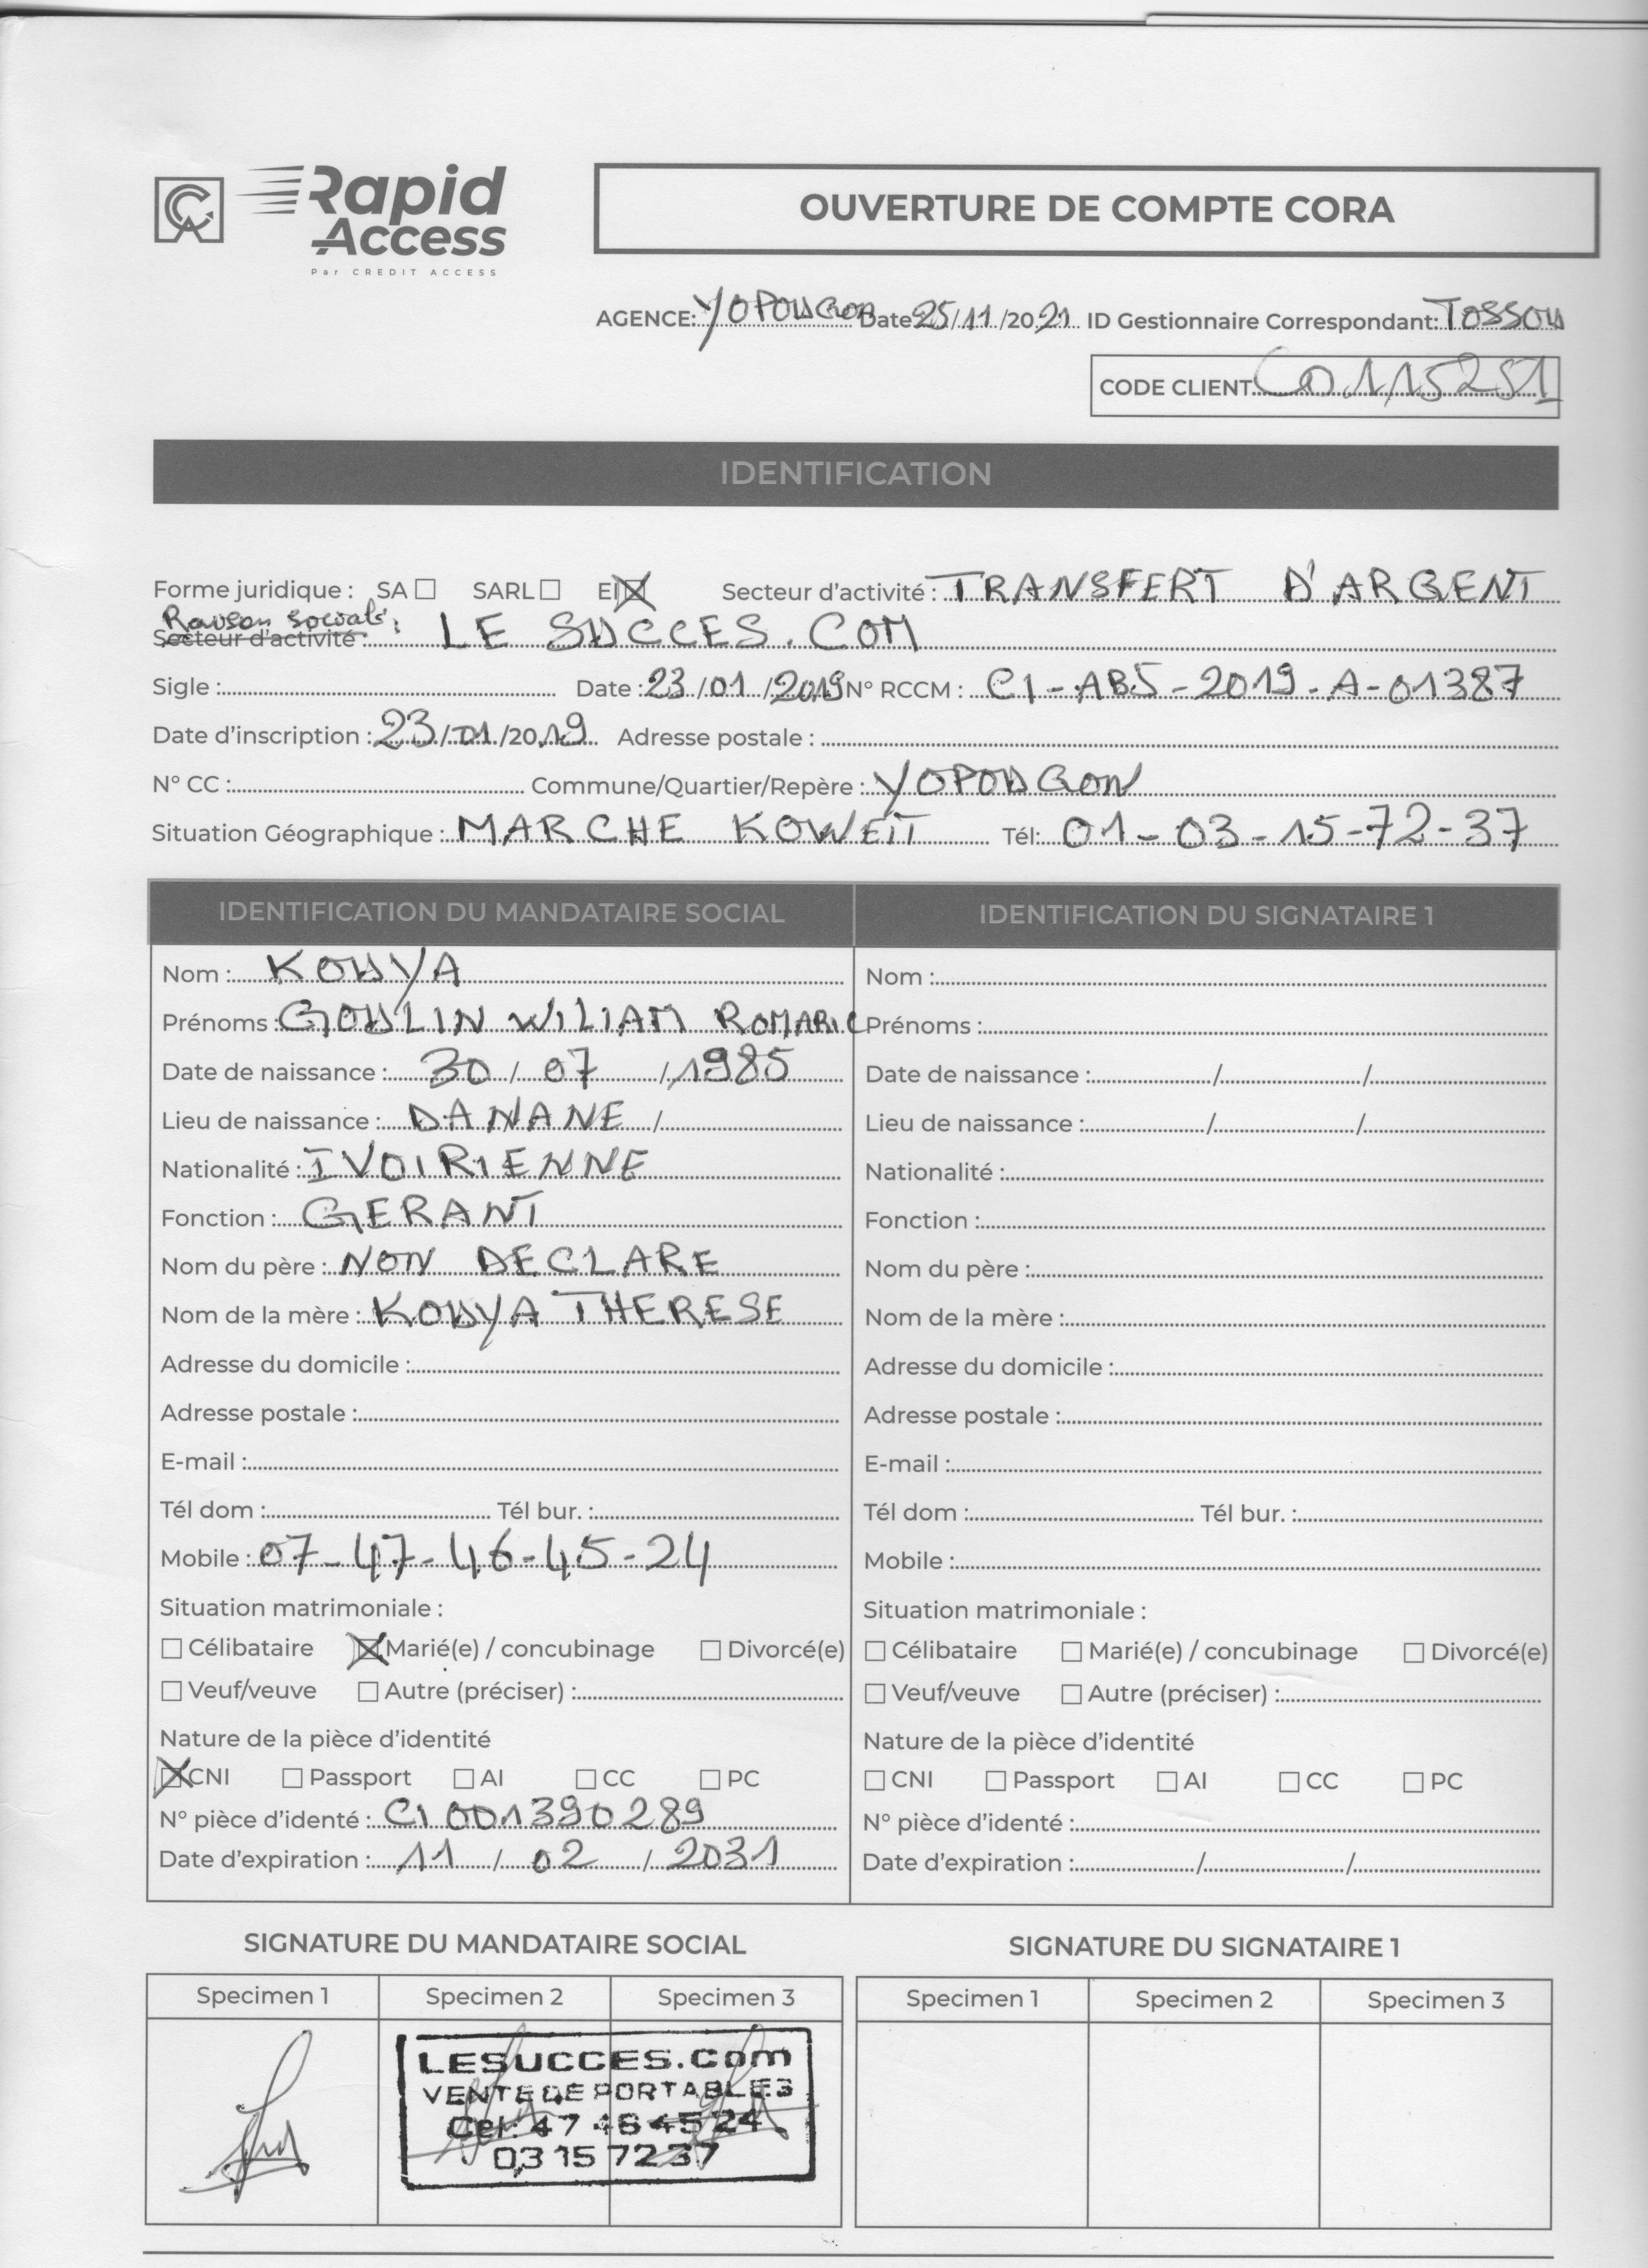 Rapid
Access
Par CREDIT ACCESS
OUVERTURE DE COMPTE CORA
AGENCE: YOPOUGON Date 25/11/2021 ID Gestionnaire Correspondant: TOSSOU
CODE CLIENT C0115251
IDENTIFICATION
Forme juridique : SA ☐ SARL ☐ EI ☒ Secteur d'activité : TRANSFERT D'ARGENT
Raison sociale :
Secteur d'activité : LE SUCCES.COM
Sigle : Date : 23/01/2019 N° RCCM : CI-AB5-2019-A-01387
Date d'inscription : 23/01/2019 Adresse postale :
N° CC : Commune/Quartier/Repère : YOPOUGON
Situation Géographique : MARCHE KOWEIT Tél: 01-03-15-72-37
IDENTIFICATION DU MANDATAIRE SOCIAL
Nom : KOUYA
Prénoms : GOULIN WILIAM ROMARIC
Date de naissance : 30/07/1985
Lieu de naissance : DANANE /
Nationalité : IVOIRIENNE
Fonction : GERANT
Nom du père : NON DECLARE
Nom de la mère : KOUYA THERESE
Adresse du domicile :
Adresse postale :
E-mail :
Tél dom : Tél bur. :
Mobile : 07-47-46-45-24
Situation matrimoniale :
☐ Célibataire ☒ Marié(e) / concubinage ☐ Divorcé(e)
☐ Veuf/veuve ☐ Autre (préciser) :
Nature de la pièce d'identité
☒ CNI ☐ Passport ☐ AI ☐ CC ☐ PC
N° pièce d'identé : CI001390289
Date d'expiration : 11/02/2031
IDENTIFICATION DU SIGNATAIRE 1
Nom :
Prénoms :
Date de naissance : / /
Lieu de naissance : / /
Nationalité :
Fonction :
Nom du père :
Nom de la mère :
Adresse du domicile :
Adresse postale :
E-mail :
Tél dom : Tél bur. :
Mobile :
Situation matrimoniale :
☐ Célibataire ☐ Marié(e) / concubinage ☐ Divorcé(e)
☐ Veuf/veuve ☐ Autre (préciser) :
Nature de la pièce d'identité
☐ CNI ☐ Passport ☐ AI ☐ CC ☐ PC
N° pièce d'identé :
Date d'expiration : / /
SIGNATURE DU MANDATAIRE SOCIAL
Specimen 1 Specimen 2 Specimen 3
LESUCCES.Com
VENTE DE PORTABLES
Cel: 47 46 45 24
03 15 72 37
SIGNATURE DU SIGNATAIRE 1
Specimen 1 Specimen 2 Specimen 3